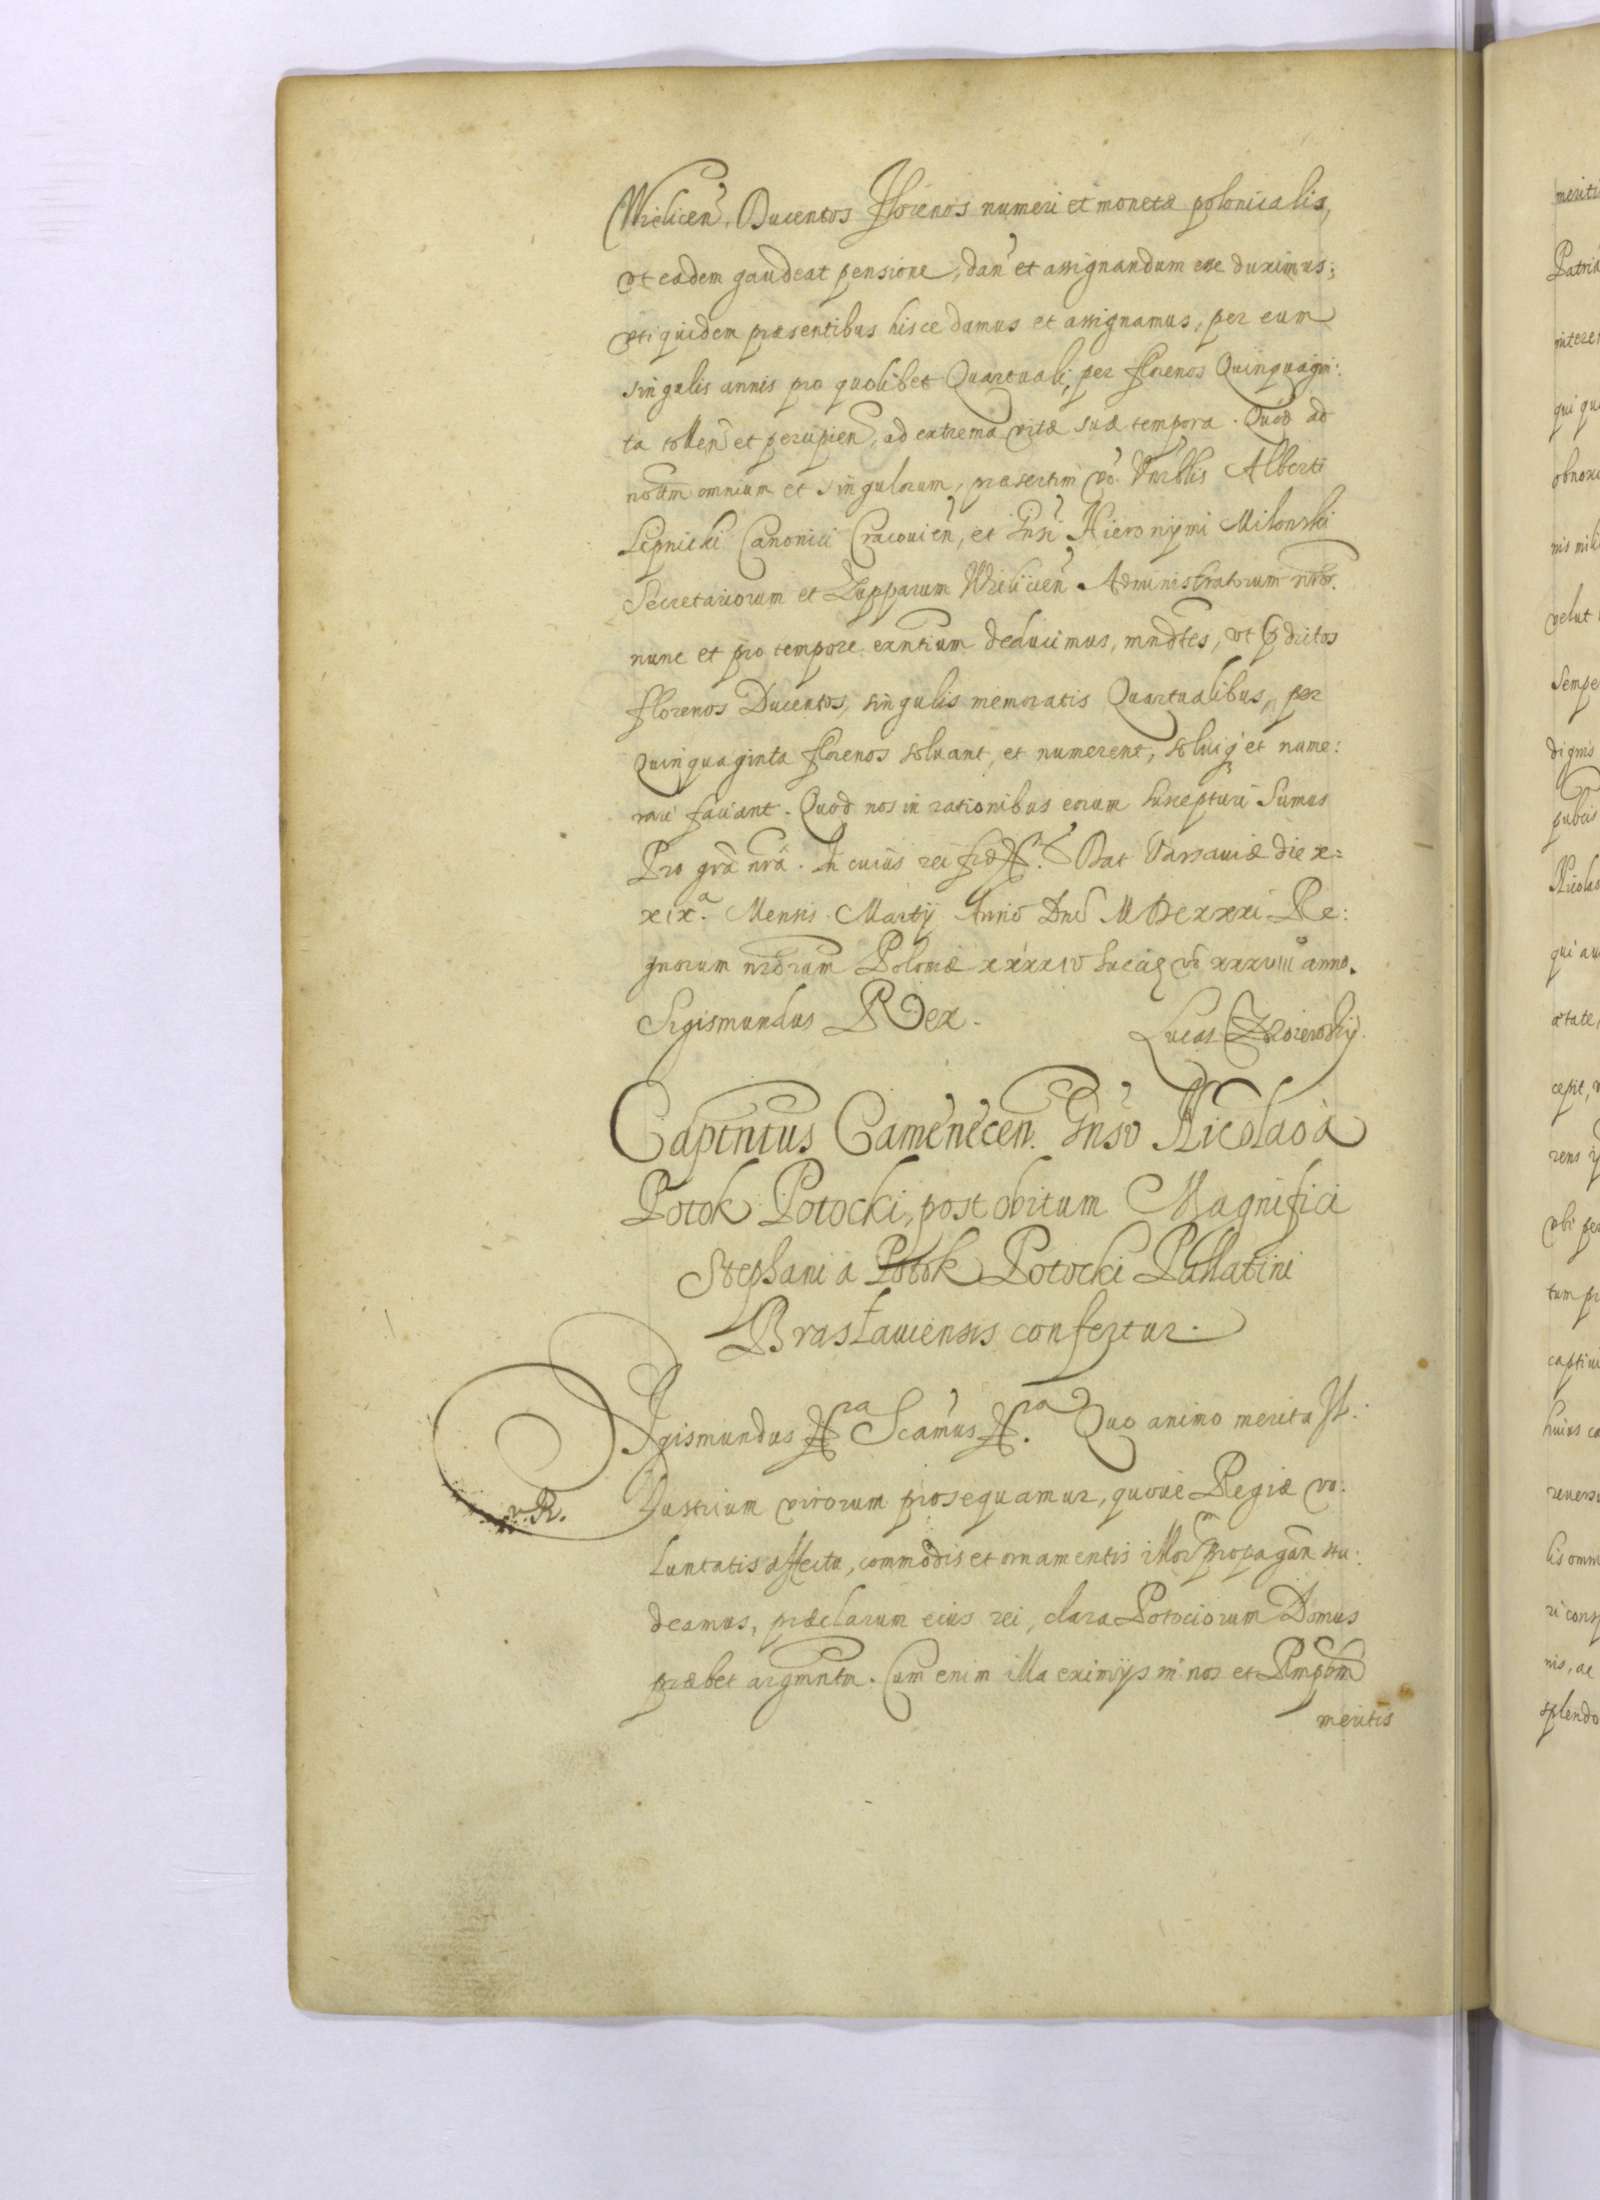 Wielicen. Ducentos Florenos numeri et monetæ polonicalis,
vt eadem gaudeat pensione, dan et assignandum esse duximus;
vti quidem præsentibus hisce damus et assignamus, per eum
singulis annis pro quolibet Quartuali, per florenos Quinquagin:
ta tollen et percipien, ad extrema vitæ suæ tempora. Quod ad
notitm omnium et singulorum, præsertim vo Vnrblis Alberti
Lipnicki Canonici Cracouien, et Gnsi Hieronymi Milonski
Secretariorum et Zupparum Wielicien Administratorum nror.
nunc et pro tempore exntium deducimus, mndtes, vt dictos
florenos Ducentos, singulis memoratis Quartualibus, per
Quinquaginta florenos soluant, et numerent, soluiq et nume:
rari faciant. Quod nos in rationibus eorum suscepturi sumus
Pro gra nra. In cuius rei fid. Dat Varsauiæ die x=
xixa. Mensis Martij Anno Dni MDCXXXI Re:
gnorum nrorum Poloniæ xxxxiv Sueciæ vo xxxviii anno.
Sigismundus Rex.
Lucas
Captntus Camenecen. Gnso Nicolao à
Potok Potocki, post obitum Magnifici
Stephani a Potok Potocki Pallatini
Brasłauiensis confertur.
Sigismundus Scamus. Quo animo merita Il:
v. R.
lustrium virorum prosequamur, quoue Regiæ vo:
luntatis affectu, commodis et ornamentis illorm propagan stu:
deamus, præclarum eius rei, clara Potociorum Domus
præbet argmntm. Cum enim illa eximijs in nos et Rmpbm
meritis
meriti
Patriæ
qui qu
velut
sempe
dignis
publis
Nicolas
qui au
ætate,
cepit,
vbi pe
tum pr
captiui
huius ca
reuersu
lis omn
ri cons
nis, ac
splendo